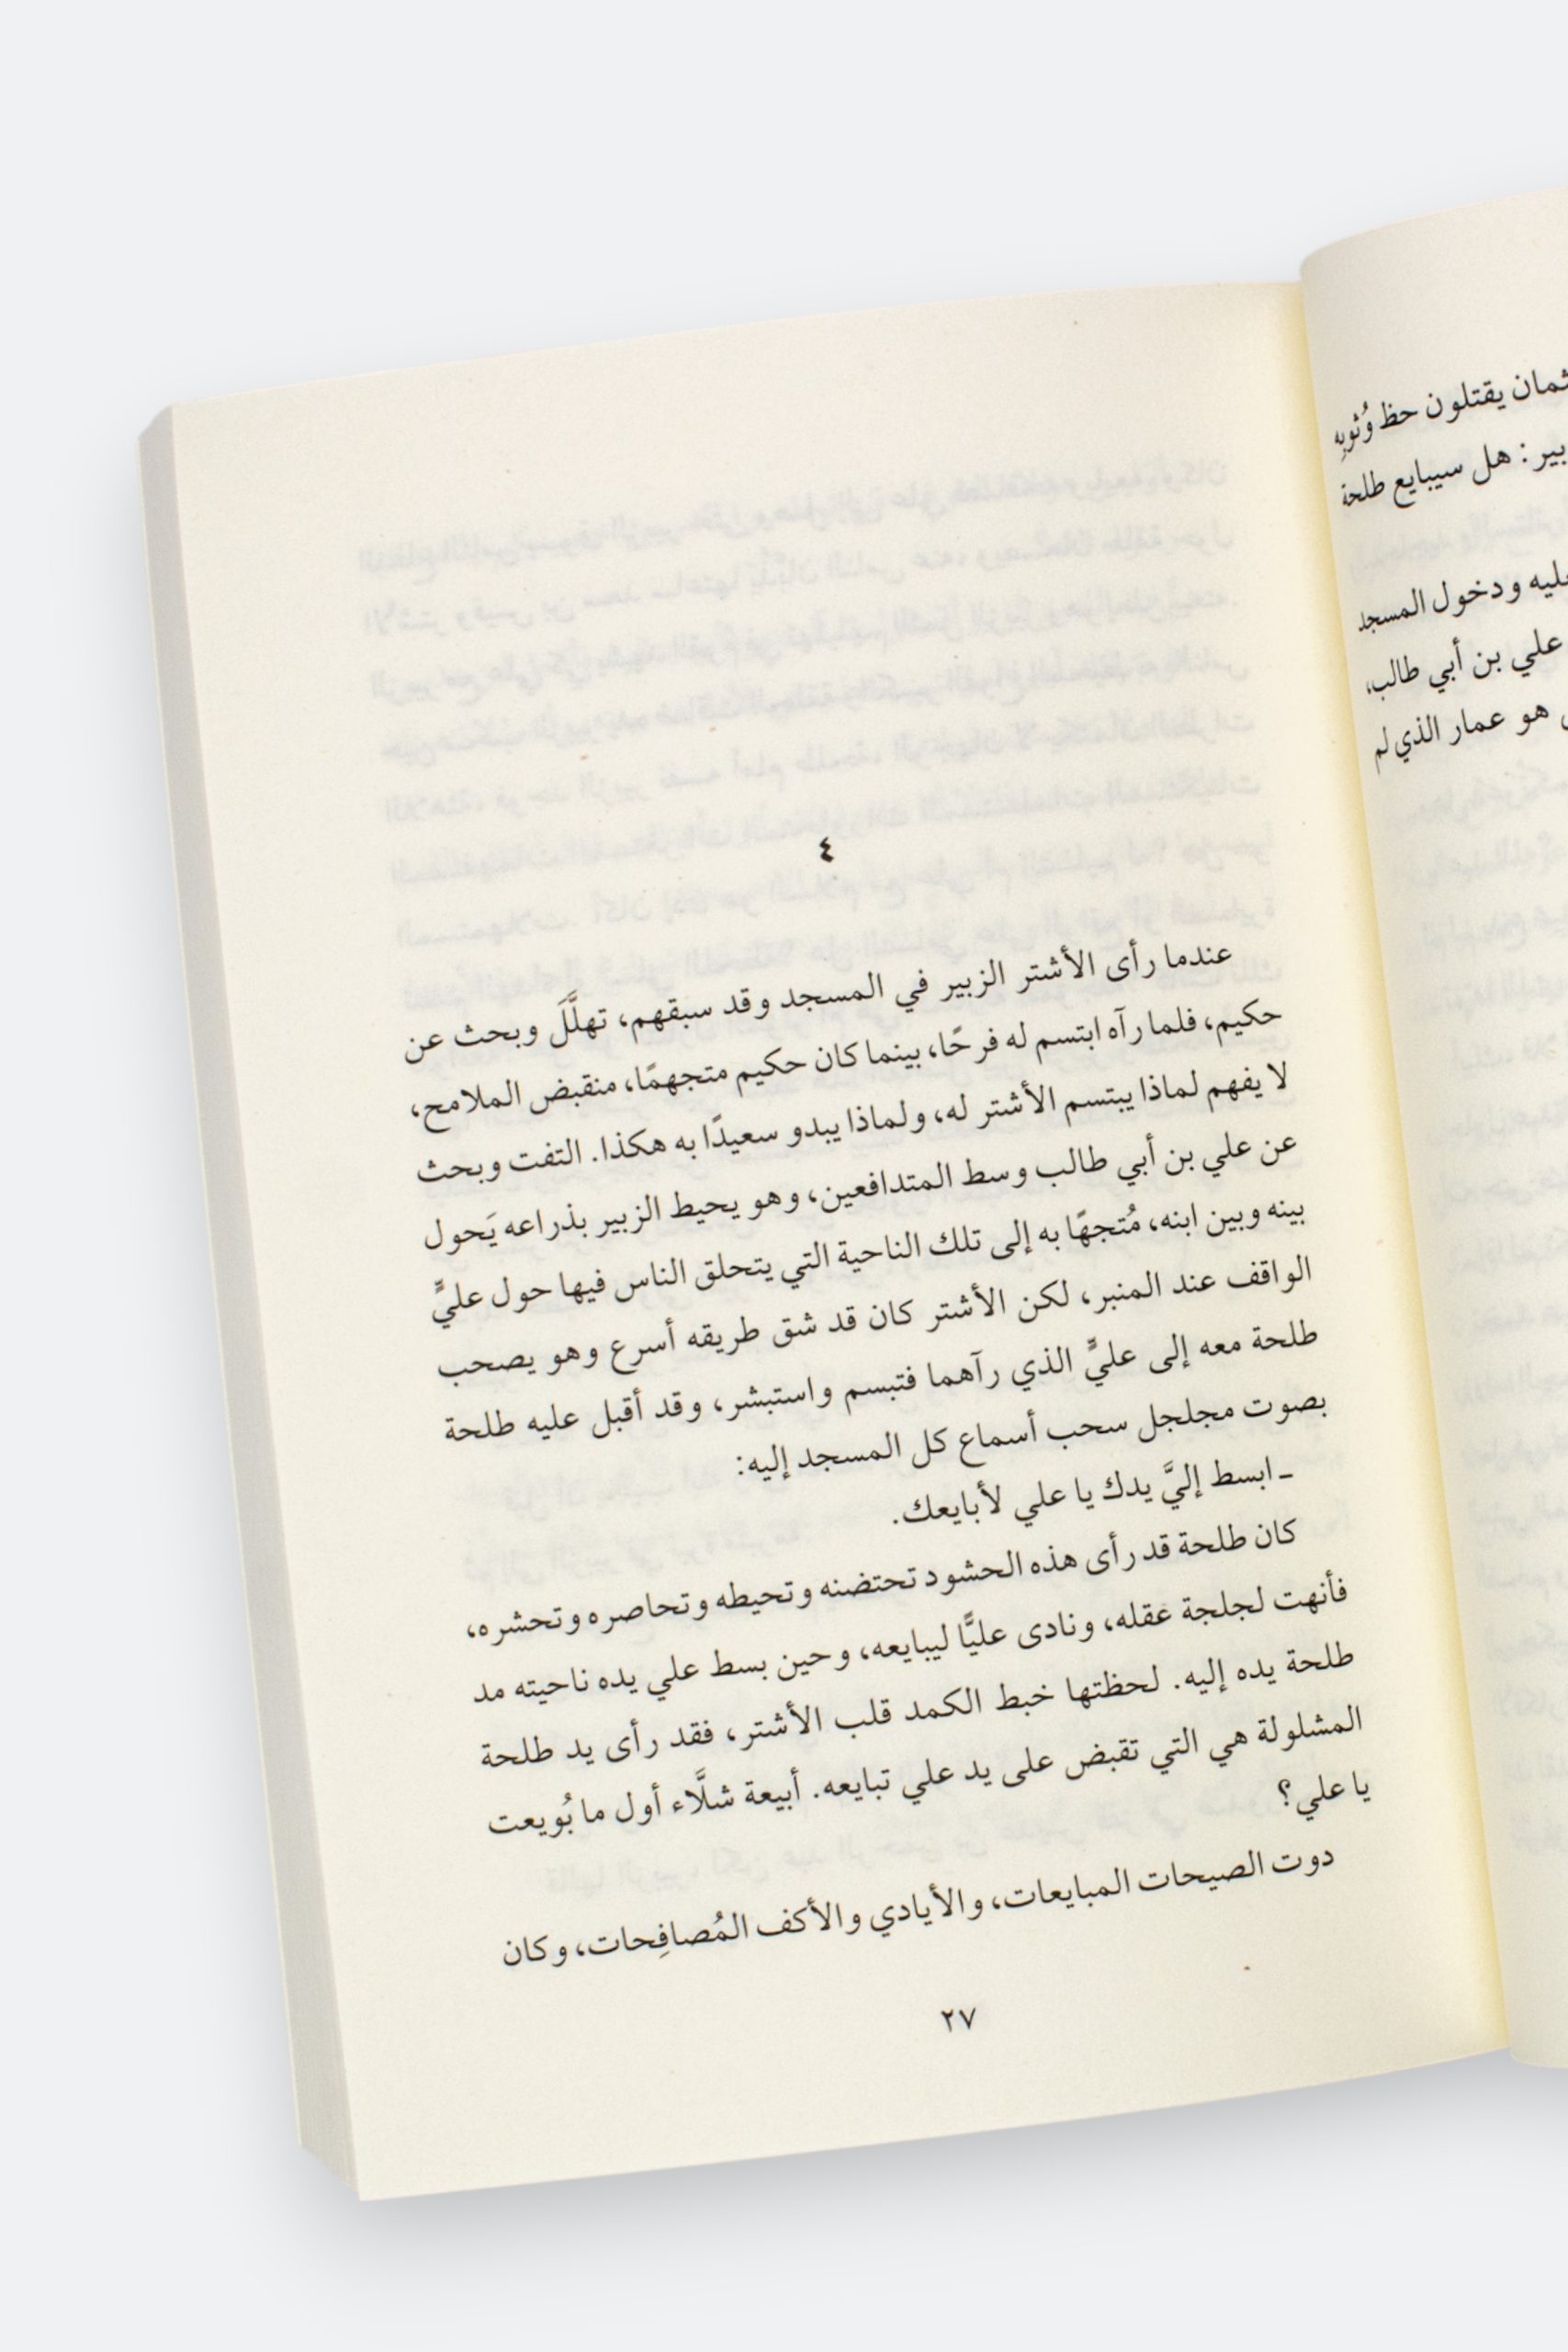 ثمان يقتلون حظ وُثوبِه
بير: هل سيبايع طلحة
عليه ودخول المسجد
علي بن أبي طالب،
هو عمار الذي لم
٤
عندما رأى الأشتر الزبير في المسجد وقد سبقهم، تهلَّلَ وبحث عن
حكيم، فلما رآه ابتسم له فرحًا، بينما كان حكيم متجهمًا، منقبض الملامح،
لا يفهم لماذا يبتسم الأشتر له، ولماذا يبدو سعيدًا به هكذا. التفت وبحث
عن علي بن أبي طالب وسط المتدافعين، وهو يحيط الزبير بذراعه يَحول
بينه وبين ابنه، مُتجهًا به إلى تلك الناحية التي يتحلق الناس فيها حول عليٍّ
الواقف عند المنبر، لكن الأشتر كان قد شق طريقه أسرع وهو يصحب
طلحة معه إلى عليٍّ الذي رآهما فتبسم واستبشر، وقد أقبل عليه طلحة
بصوت مجلجل سحب أسماع كل المسجد إليه:
ـ ابسط إليَّ يدك يا علي لأبايعك.
كان طلحة قد رأى هذه الحشود تحتضنه وتحيطه وتحاصره وتحشره،
فأنهت لجلجة عقله، ونادى عليًّا ليبايعه، وحين بسط علي يده ناحيته مد
طلحة يده إليه. لحظتها خبط الكمد قلب الأشتر، فقد رأى يد طلحة
المشلولة هي التي تقبض على يد علي تبايعه. أبيعة شلَّاء أول ما بُويعت
يا علي؟
دوت الصيحات المبايعات، والأيادي والأكف المُصافِحات، وكان
٢٧